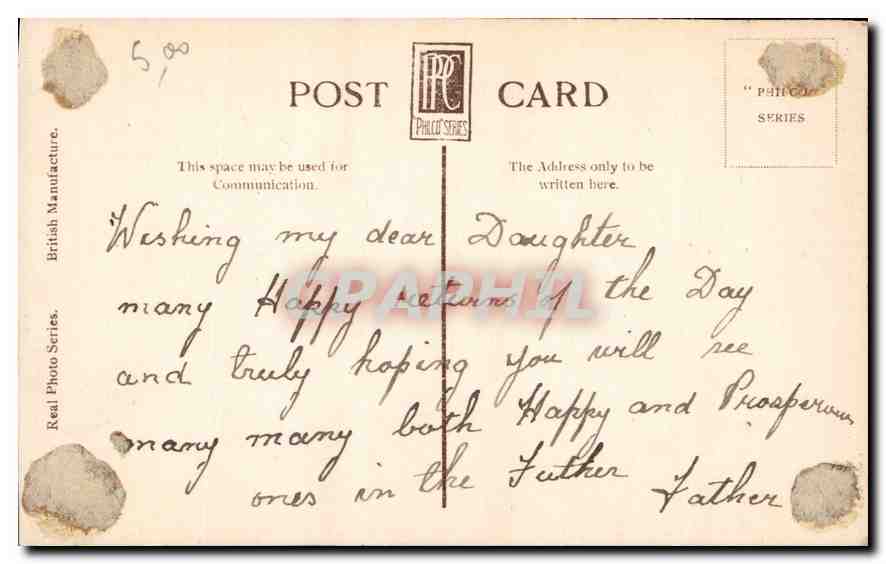 5,00
POST CARD
PPC
"PHILCO" SERIES
"PHILCO"
SERIES
British Manufacture.
Real Photo Series.
This space may be used for
Communication.
The Address only to be
written here.
Wishing my dear Daughter
many Happy returns of the Day
and truly hoping you will see
many many both Happy and Prosperous
ones in the Futher
Father
CPAPHIL